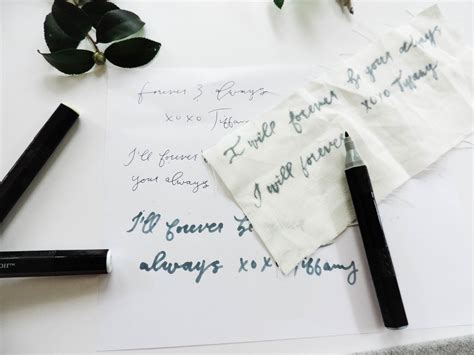 forever & always
xoxo Tiffany
I'll forever
your always
I'll forever be
always xoxo Tiffany
I will forever be your always
xoxo Tiffany
I will forever